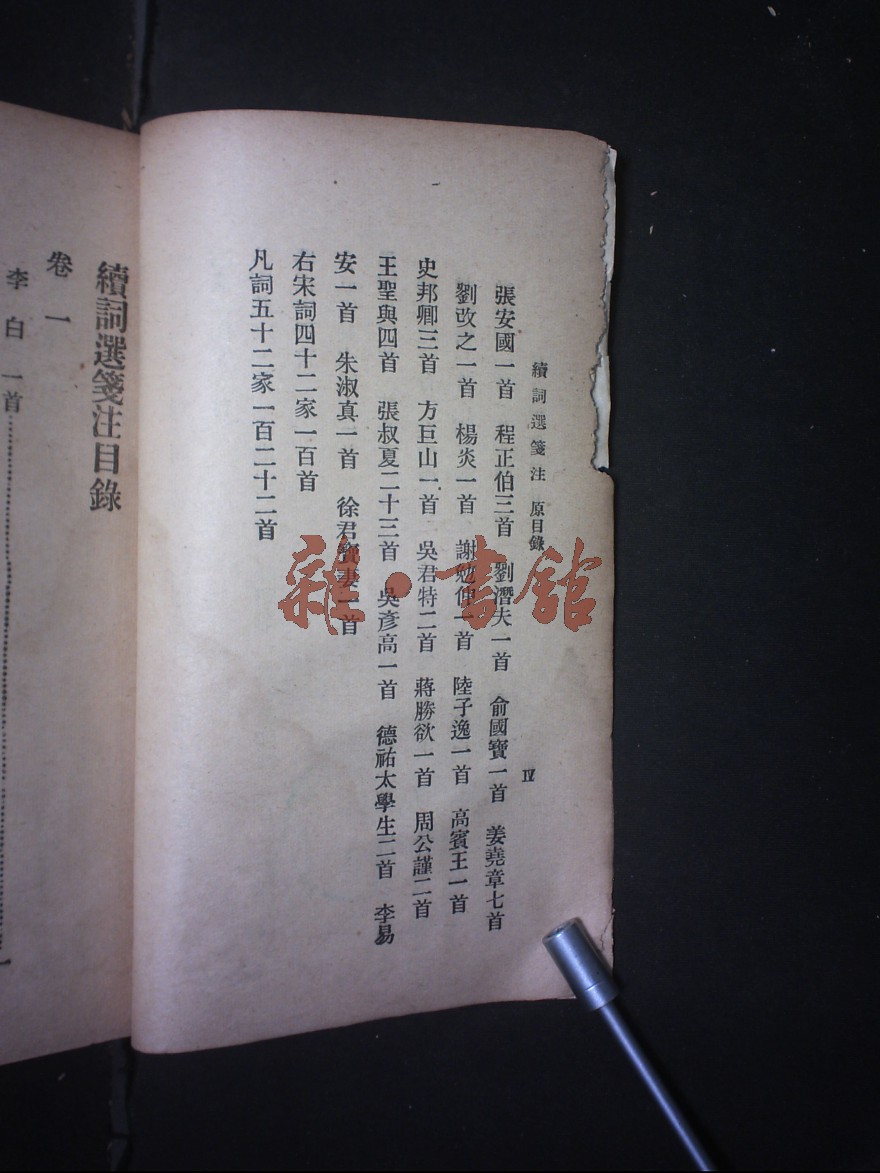 續詞選箋注 原目錄 IV
張安國一首 程正伯三首 劉潛夫一首 俞國寶一首 姜堯章七首
劉改之一首 楊炎一首 謝勉仲一首 陸子逸一首 高賓王一首
史邦卿三首 方巨山一首 吳君特二首 蔣勝欲一首 周公謹二首
王聖與四首 張叔夏二十三首 吳彥高一首 德祐太學生二首 李易
安一首 朱淑真一首 徐君寶妻一首
右宋詞四十二家一百首
凡詞五十二家一百二十二首
續詞選箋注目錄
卷一
李白 一首 一
雜·書館